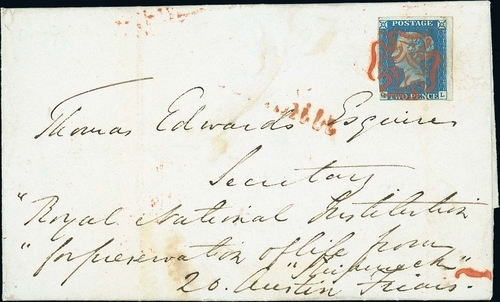 POSTAGE
L
TWO PENCE
Thomas Edwards Esquire
Secretary
"Royal National Institution
"for preservation of life from
"Shipwreck"
20. Austin Friars.